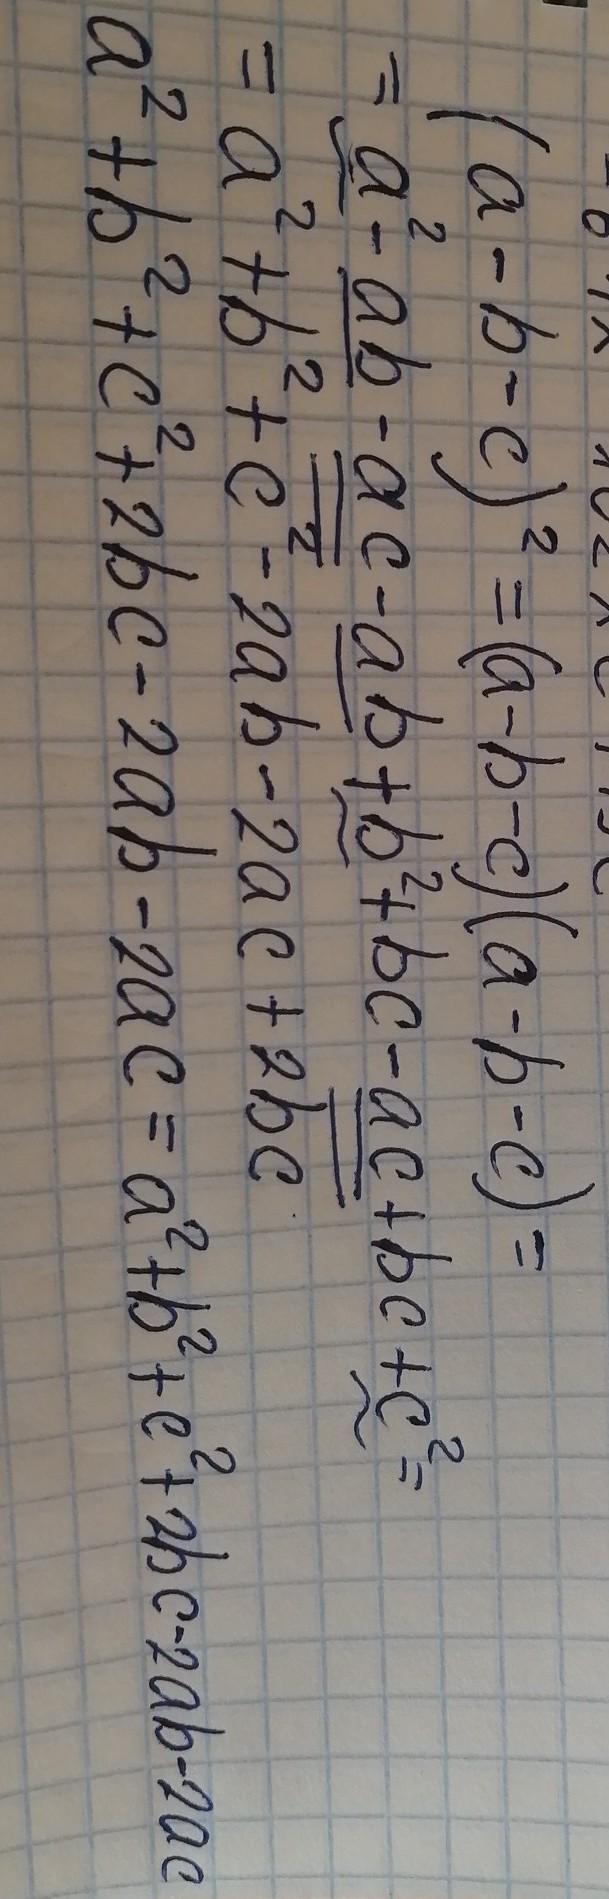 (a-b-c)² = (a-b-c)(a-b-c) =
= a² - ab - ac - ab + b² + bc - ac + bc + c² =
= a² + b² + c² - 2ab - 2ac + 2bc
a² + b² + c² + 2bc - 2ab - 2ac = a² + b² + c² + 2bc - 2ab - 2ac